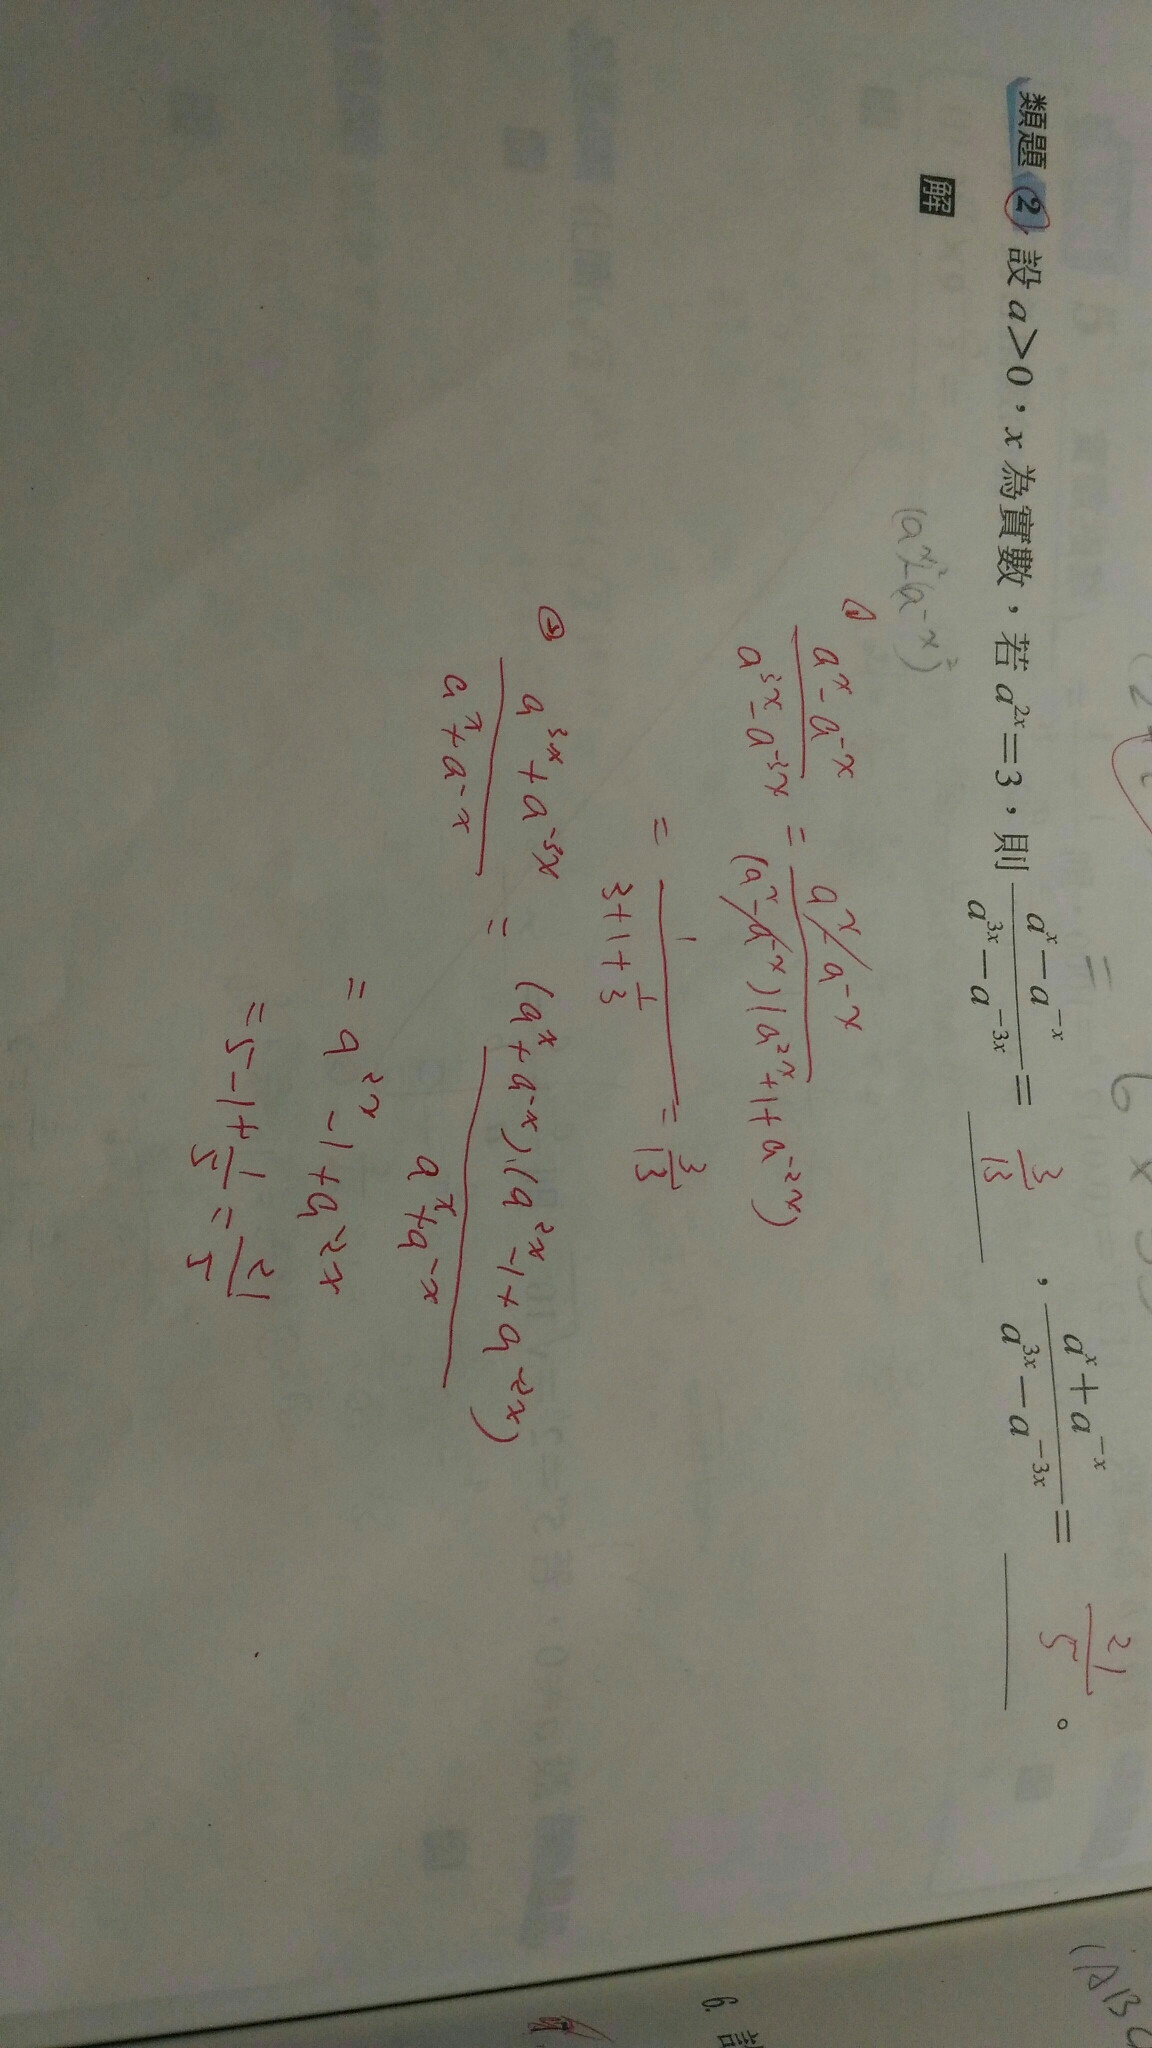 類題 2 設 a>0，x 為實數，若 a^{2x}=3，則 \frac{a^x-a^{-x}}{a^{3x}-a^{-3x}}= \frac{3}{13} ，\frac{a^x+a^{-x}}{a^{3x}-a^{-3x}}= \frac{21}{5} 。
解
(a^x)^2-(a^{-x})^2
① \frac{a^x-a^{-x}}{a^{3x}-a^{-3x}} = \frac{a^x-a^{-x}}{(a^x-a^{-x})(a^{2x}+1+a^{-2x})}
= \frac{1}{3+1+\frac{1}{3}} = \frac{3}{13}
② \frac{a^{3x}+a^{-3x}}{a^x+a^{-x}} = \frac{(a^x+a^{-x})(a^{2x}-1+a^{-2x})}{a^x+a^{-x}}
= a^{2x}-1+a^{-2x}
= 5-1+\frac{1}{5} = \frac{21}{5}
6.